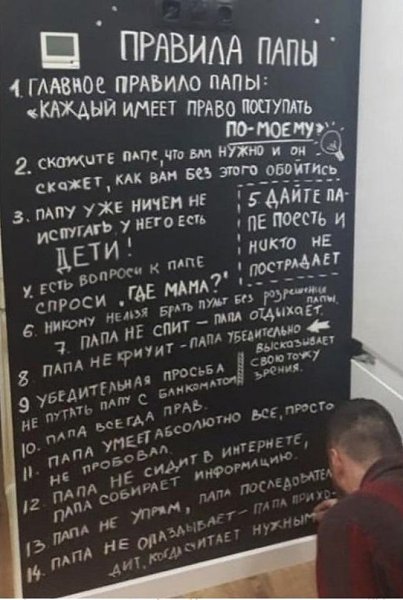 ПРАВИЛА ПАПЫ
1. ГЛАВНОЕ ПРАВИЛО ПАПЫ:
«КАЖДЫЙ ИМЕЕТ ПРАВО ПОСТУПАТЬ
ПО-МОЕМУ»
2. СКАЖИТЕ ПАПЕ, ЧТО ВАМ НУЖНО И ОН
СКАЖЕТ, КАК ВАМ БЕЗ ЭТОГО ОБОЙТИСЬ
3. ПАПУ УЖЕ НИЧЕМ НЕ
ИСПУГАТЬ, У НЕГО ЕСТЬ
ДЕТИ!
4. ЕСТЬ ВОПРОСЫ К ПАПЕ
СПРОСИ „ГДЕ МАМА?"
5 ДАЙТЕ ПА-
ПЕ ПОЕСТЬ И
НИКТО НЕ
ПОСТРАДАЕТ
6. НИКОМУ НЕЛЬЗЯ БРАТЬ ПУЛЬТ БЕЗ РАЗРЕШЕНИЯ
ПАПЫ.
7. ПАПА НЕ СПИТ – ПАПА ОТДЫХАЕТ.
8. ПАПА НЕ КРИЧИТ - ПАПА УБЕДИТЕЛЬНО
ВЫСКАЗЫВАЕТ
СВОЮ ТОЧКУ
ЗРЕНИЯ.
9 УБЕДИТЕЛЬНАЯ ПРОСЬБА
НЕ ПУТАТЬ ПАПУ С БАНКОМАТОМ
10. ПАПА ВСЕГДА ПРАВ.
11. ПАПА УМЕЕТ АБСОЛЮТНО ВСЕ, ПРОСТО
НЕ ПРОБОВАЛ.
12. ПАПА НЕ СИДИТ В ИНТЕРНЕТЕ,
ПАПА СОБИРАЕТ ИНФОРМАЦИЮ.
13 ПАПА НЕ УПРЯМ, ПАПА ПОСЛЕДОВАТЕЛ
14. ПАПА НЕ ОПАЗДЫВАЕТ – ПАПА ПРИХО-
ДИТ, КОГДА СЧИТАЕТ НУЖНЫМ